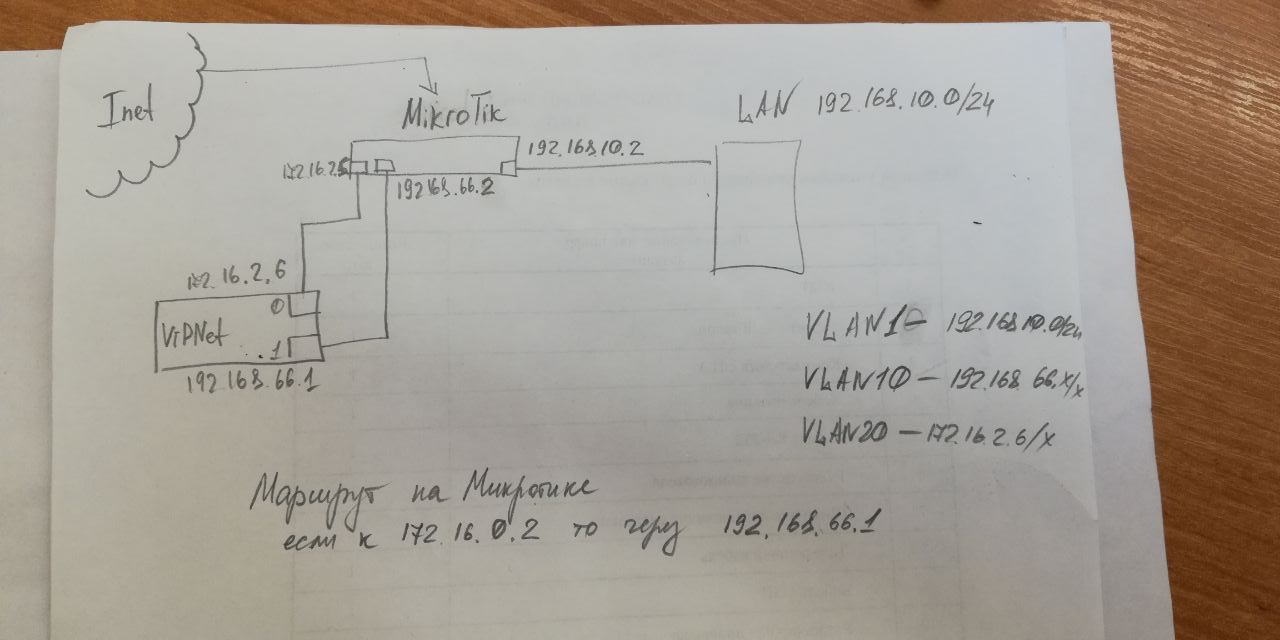 Inet
MikroTik
LAN 192.168.10.0/24
192.168.10.2
172.16.2.5
192.168.66.2
172.16.2.6
0
ViPNet
1
192.168.66.1
VLAN1 – 192.168.10.0/24
VLAN10 – 192.168.66.x/x
VLAN20 – 172.16.2.6/x
Маршрут на Микротике
если к 172.16.0.2 то через 192.168.66.1